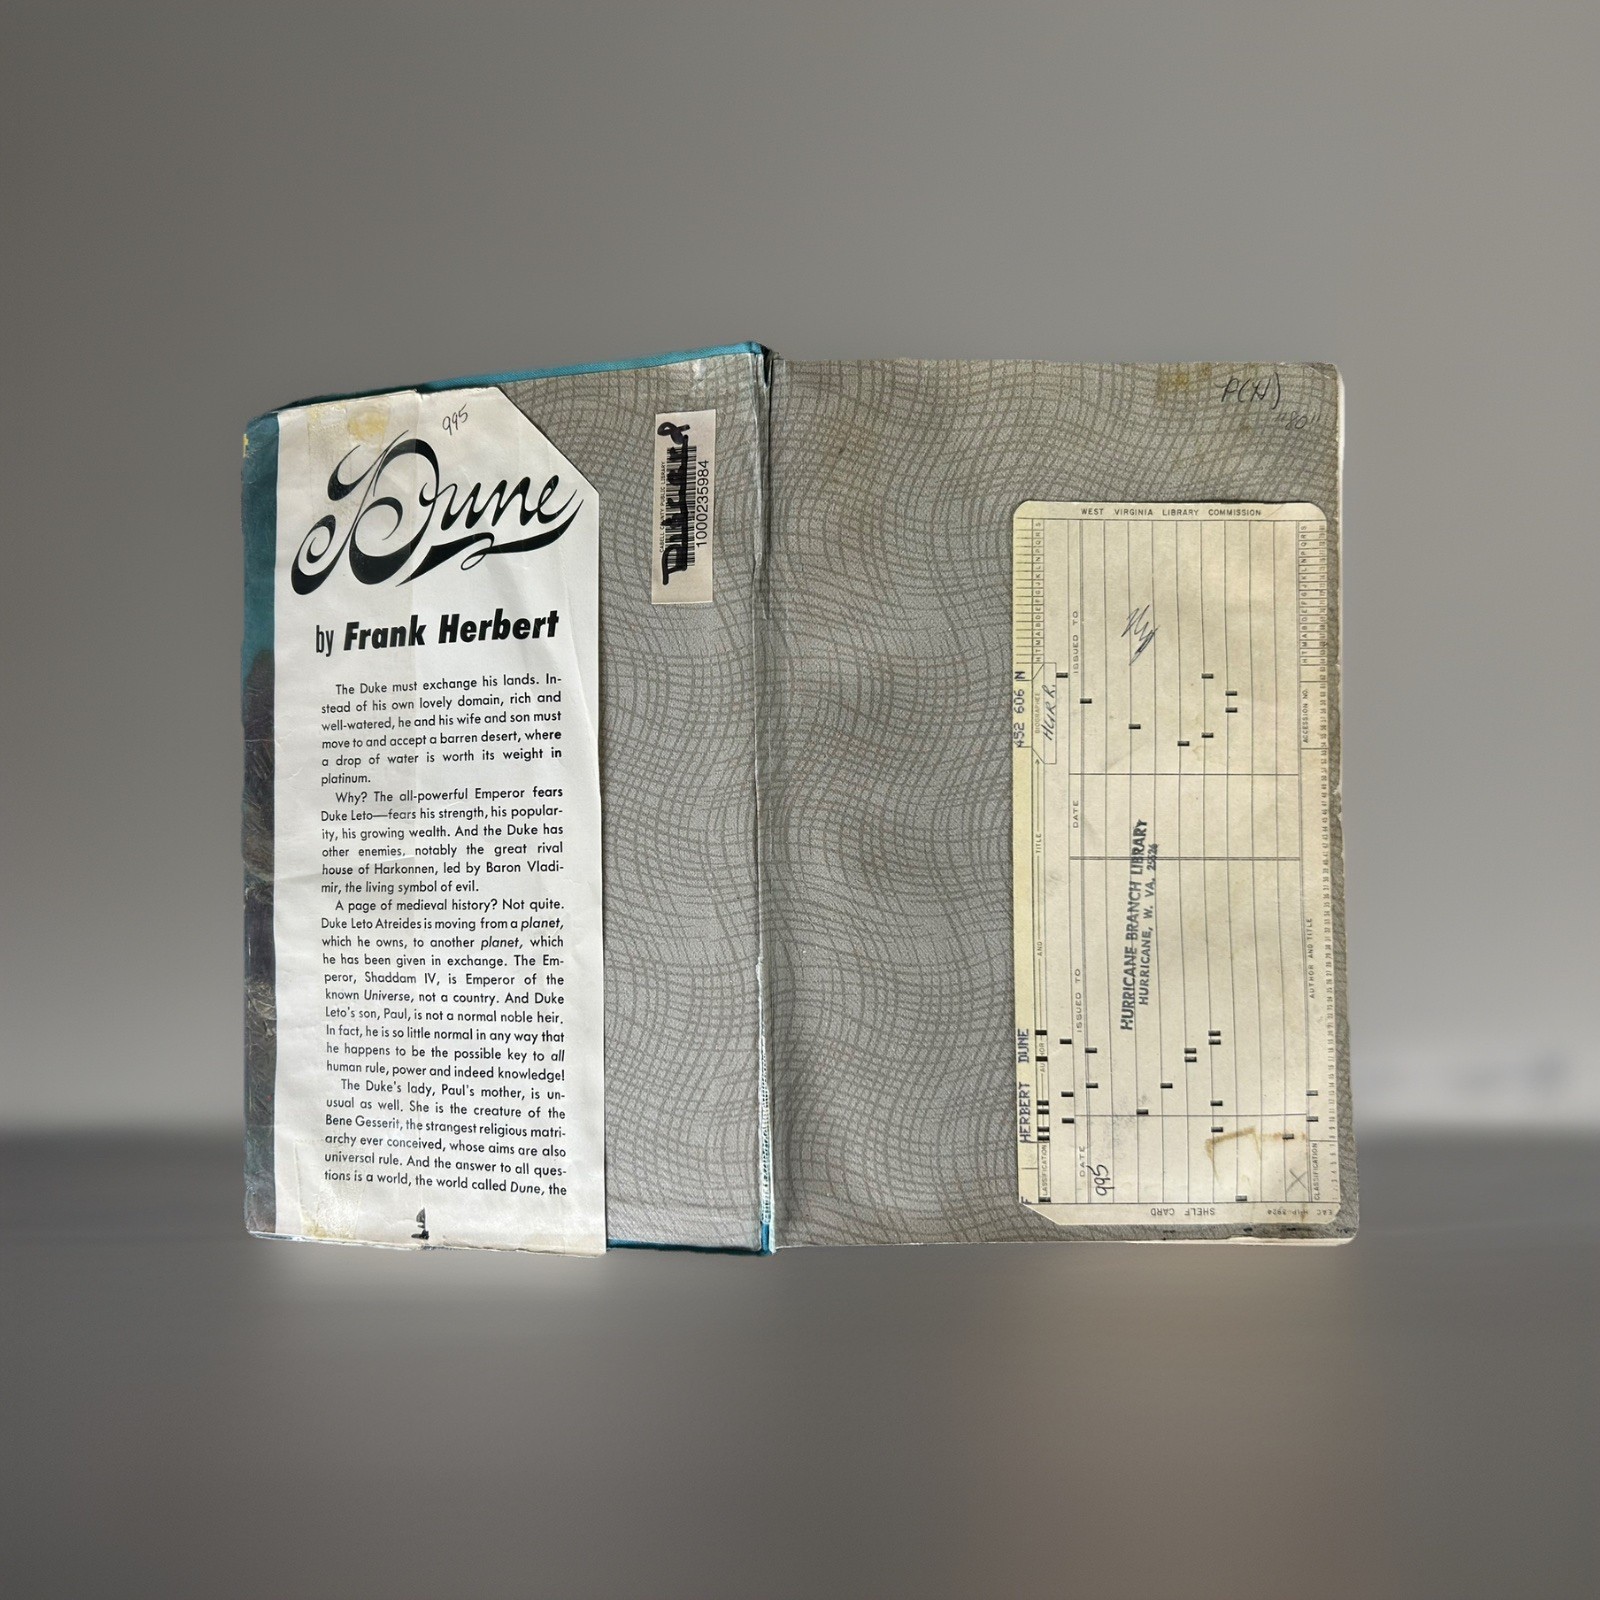 995
Dune
by Frank Herbert
The Duke must exchange his lands. In-
stead of his own lovely domain, rich and
well-watered, he and his wife and son must
move to and accept a barren desert, where
a drop of water is worth its weight in
platinum.
Why? The all-powerful Emperor fears
Duke Leto—fears his strength, his popular-
ity, his growing wealth. And the Duke has
other enemies, notably the great rival
house of Harkonnen, led by Baron Vladi-
mir, the living symbol of evil.
A page of medieval history? Not quite.
Duke Leto Atreides is moving from a planet,
which he owns, to another planet, which
he has been given in exchange. The Em-
peror, Shaddam IV, is Emperor of the
known Universe, not a country. And Duke
Leto's son, Paul, is not a normal noble heir.
In fact, he is so little normal in any way that
he happens to be the possible key to all
human rule, power and indeed knowledge!
The Duke's lady, Paul's mother, is un-
usual as well. She is the creature of the
Bene Gesserit, the strangest religious matri-
archy ever conceived, whose aims are also
universal rule. And the answer to all ques-
tions is a world, the world called Dune, the
CABELL COUNTY PUBLIC LIBRARY
1000235984
"80"
WEST VIRGINIA LIBRARY COMMISSION
F HERBERT DUNE 452 606 N
CLASSIFICATION AUTHOR AND TITLE
HURR.
DATE ISSUED TO DATE ISSUED TO
995
HURRICANE BRANCH LIBRARY
HURRICANE, W. VA. 25526
CLASSIFICATION AUTHOR AND TITLE ACCESSION NO.
SHELF CARD